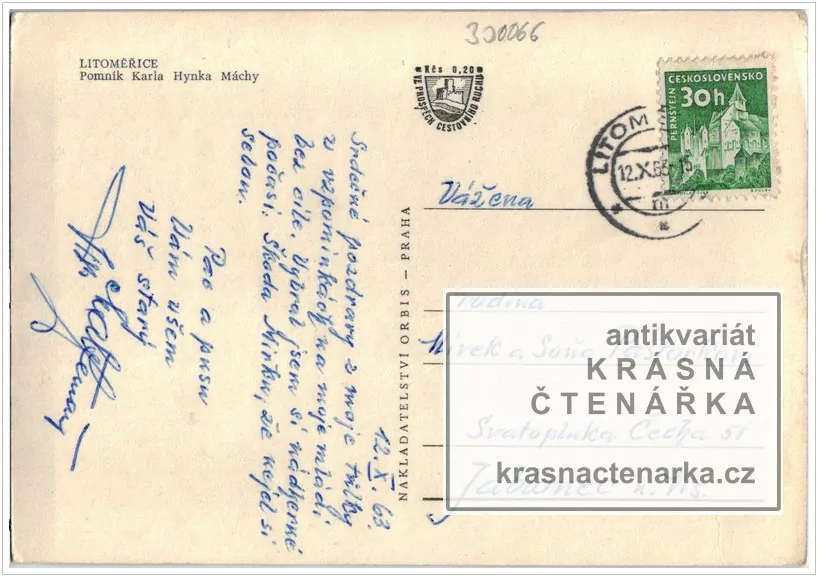 300066
LITOMĚŘICE
Pomník Karla Hynka Máchy
Kčs 0,20
VE PROSPĚCH CESTOVNÍHO RUCHU
ČESKOSLOVENSKO
30h
PERNŠTEJN
LITOM
12.X.63-15
m
12.X.63.
Srdečné pozdravy z moje túlky
v vzpomínkách na moje mládí
bez cíle. Vybral jsem si nádherné
počasí. Škoda Mirku, že nejel si
sebou.
Pac a pusu
Vám všem
Váš starý
NAKLADATELSTVÍ ORBIS – PRAHA
Vážena
rodina
Mirek a Soňa
Svatopluka Čecha 51
antikvariát
KRÁSNÁ
ČTENÁŘKA
krasnactenarka.cz